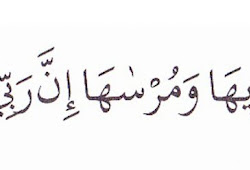 يهَا وَمُرْسٰهَا إِنَّ رَبِّي